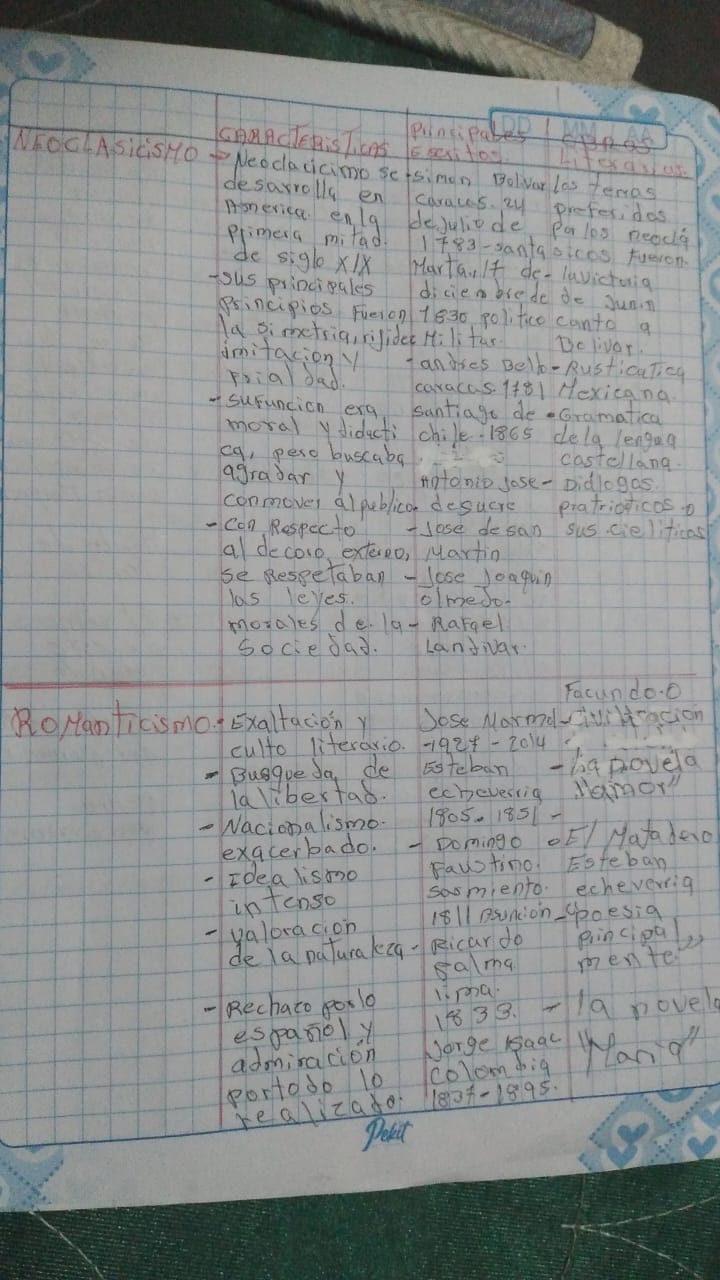 DD MM AA
CARACTERISTICAS
Principales
Escritos
Opras
Literarias
NEOCLASICISMO
- Neoclacicimo se
desarrolla en
America en la
Primera mitad
de siglo XIX
- sus principales
principios Fueron
la simetria, rijidez
imitacion y
Frialdad.
- su funcion era
moral y didacti
ca, pero buscaba
agradar y
conmover al publico
- Con Respecto
al decoro externo,
se Respetaban
las leyes.
morales de la
Sociedad.
- simon Bolivar
caracas. 24
de Julio de
1783 - santa
Marta, 17 de
diciembre de
1830 politico
Militar.
- andres Bello
caracas. 1781
santiago de
chile. 1865
Antonio Jose
de sucre
- Jose de san
Martin
- Jose Joaquin
olmedo.
- Rafael
Landivar.
los temas
preferidos
Por los neoclá
sicos fueron.
- la victoria
de Junin
canto a
Bolivar.
- Rusticatica
Mexicana.
• Gramatica
de la lengua
castellana.
- Dialogos
pratrioticos o
sus cieliticos
ROManticismo
• Exaltación y
culto literario.
- Busqueda de
la libertad.
- Nacionalismo
exacerbado.
- Idealismo
intenso
- valoracion
de la naturaleza
- Rechaco por lo
español y
admiración
por todo lo
realizado.
Jose Marmol
- 1927 - 2014
Esteban
echeverria
1805. 1851 -
- Domingo
Faustino.
sasmiento.
1811 Asuncion
- Ricardo
palma
lima.
1833.
Jorge Isaac
colombia
1837 - 1895.
Facundo. O
civilizacion
- La novela
"amor"
• El Matadero
Esteban
echeverria
- poesia
principal
mente"
- la novela
"Maria"
Pekit